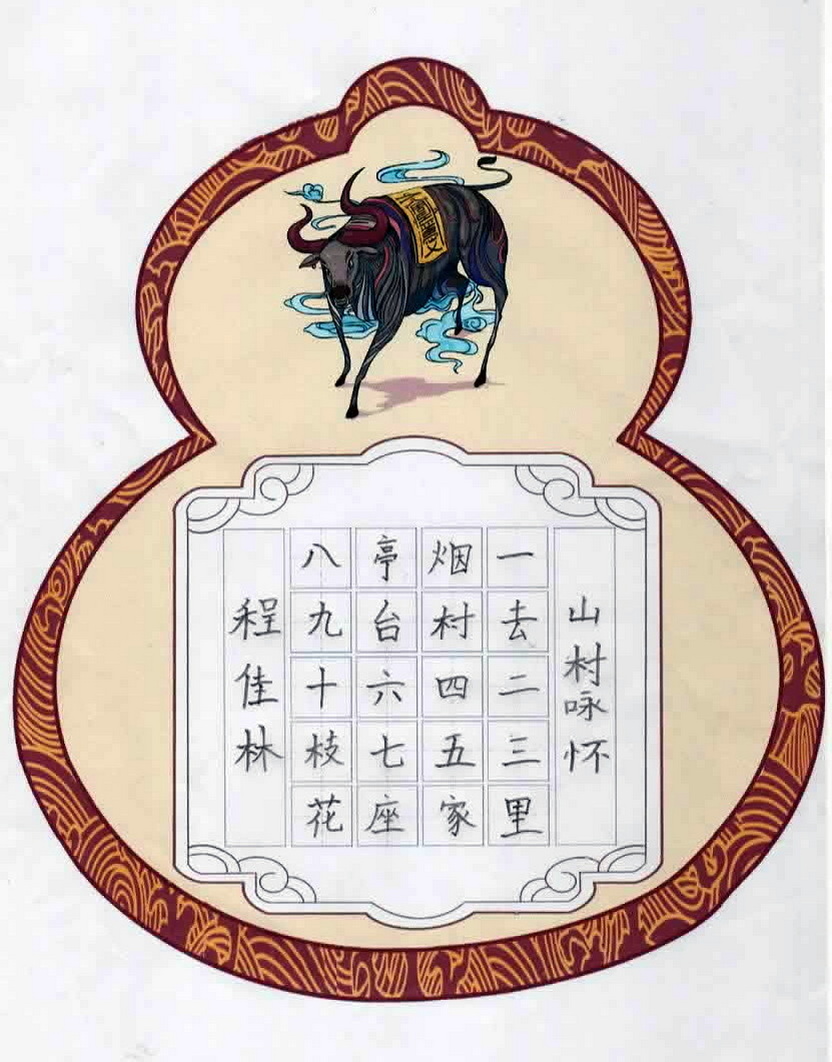 山村咏怀
一去二三里
烟村四五家
亭台六七座
八九十枝花
程佳林